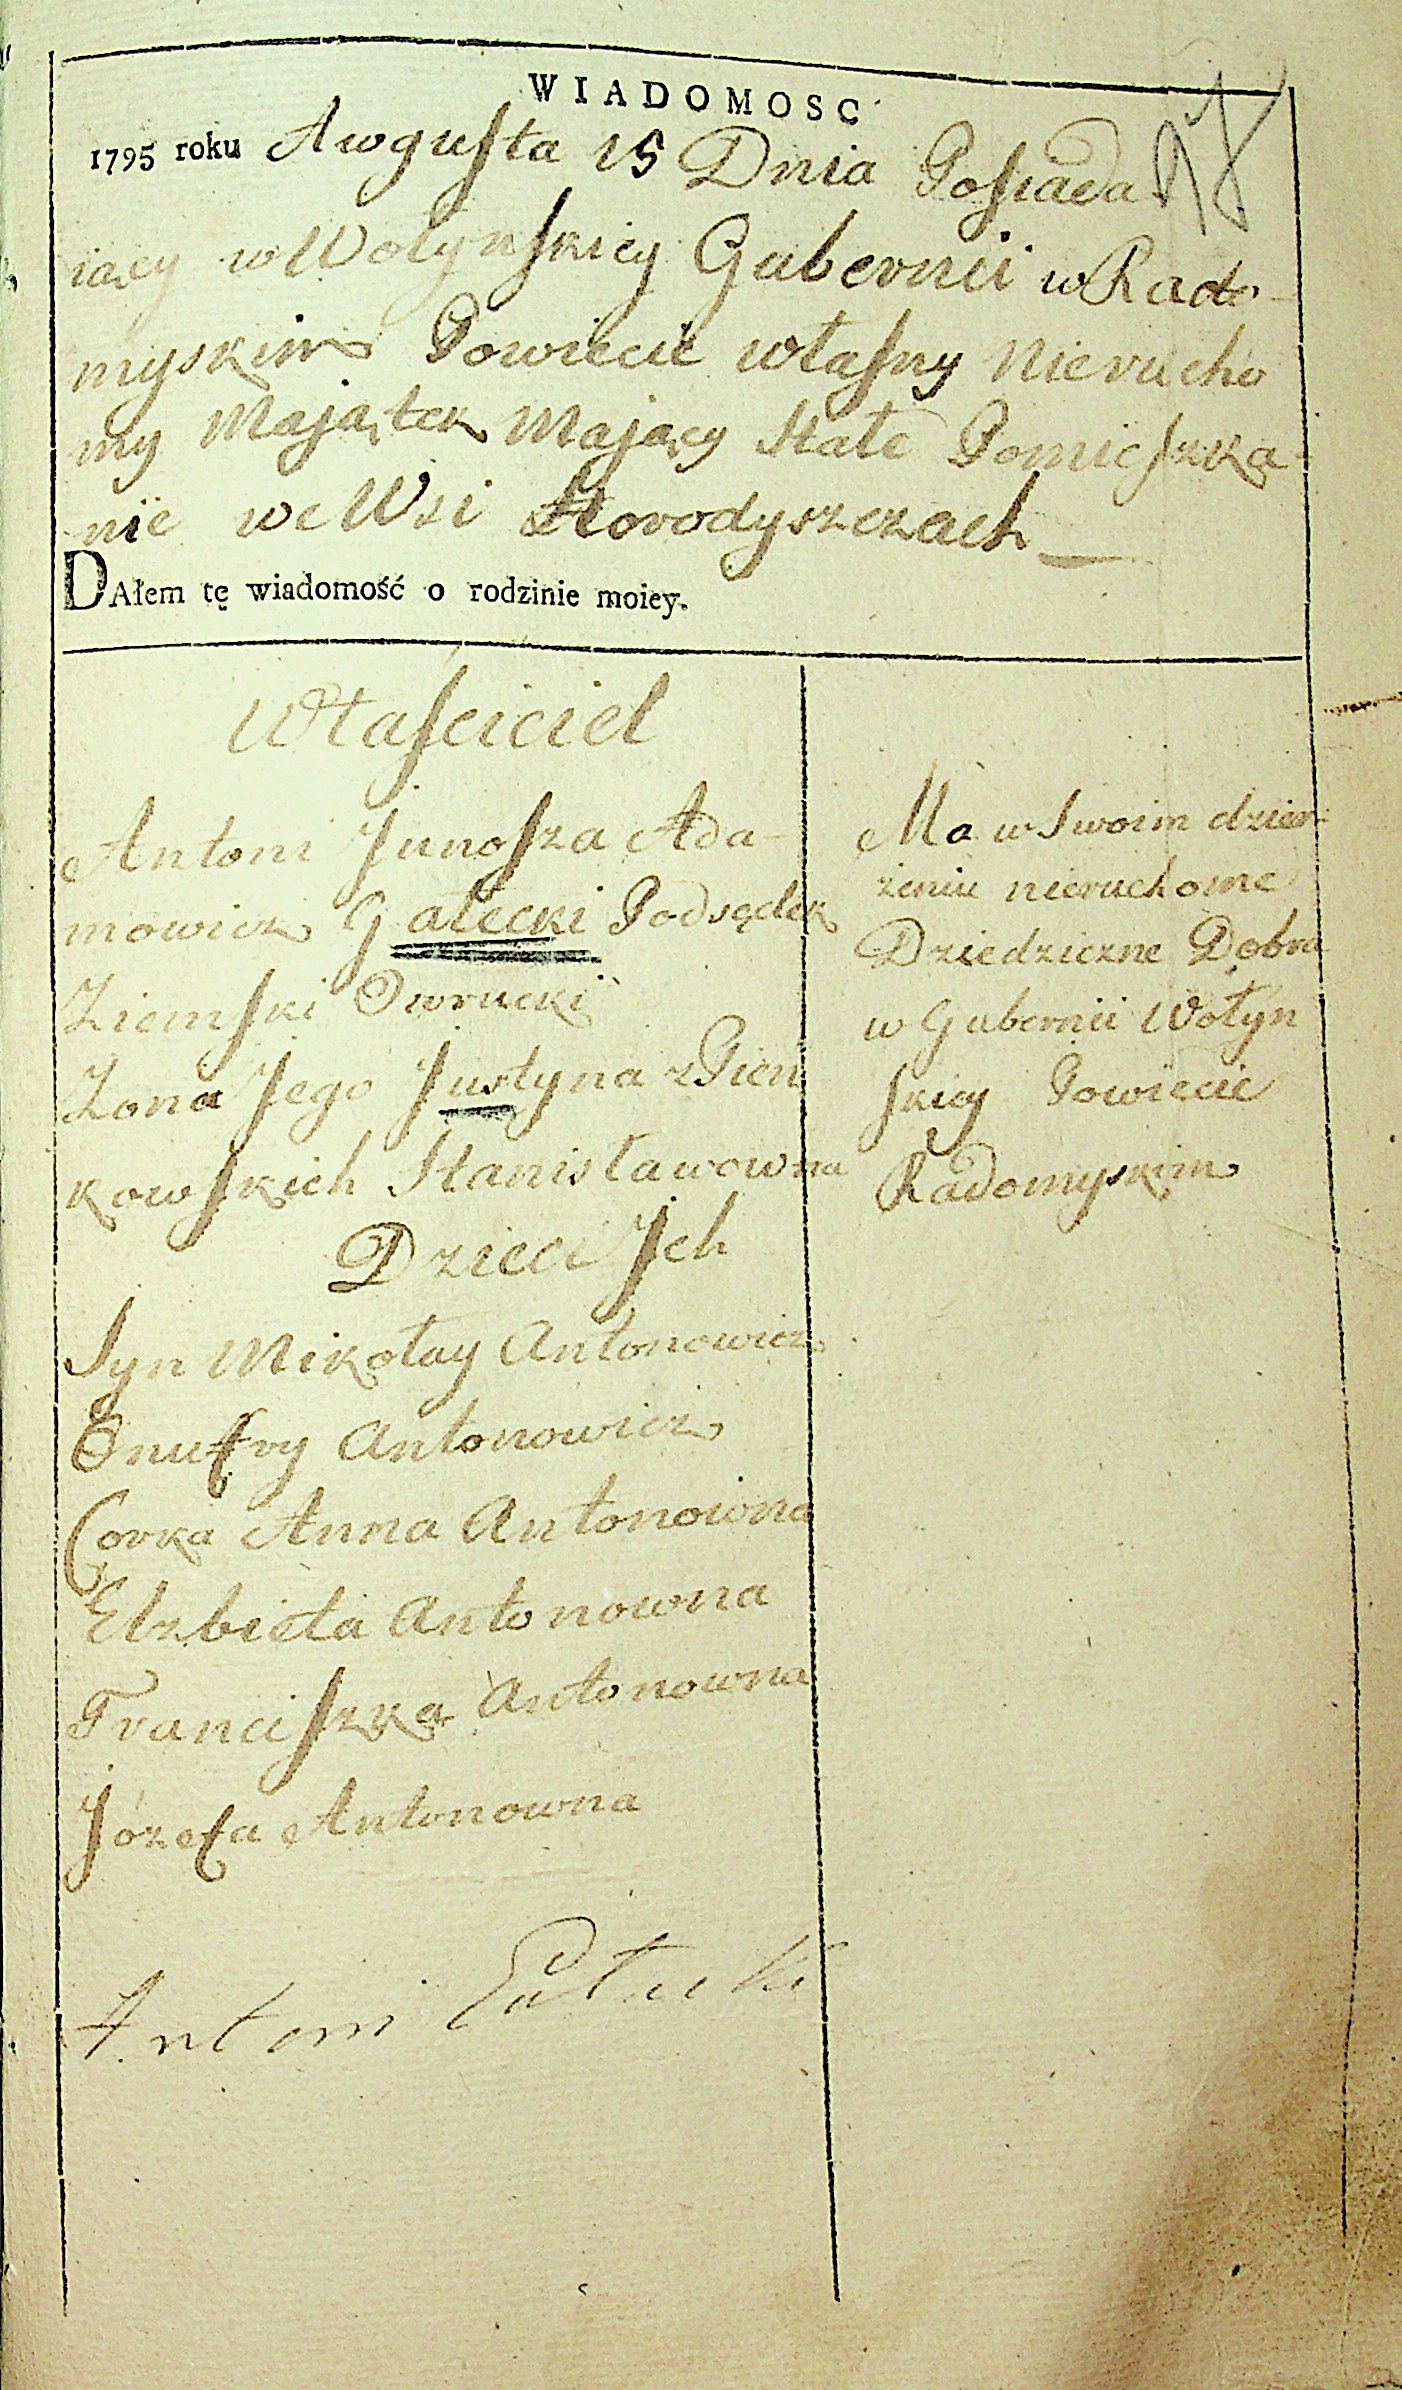 WIADOMOSC
1795 roku Awgusta 15 Dnia Posiada
iący w Wołynskiey Gubernii w Rado-
myskim Powiecie własny Nierucho
my Majątek Mający Stałe Pomieszka-
nie we Wsi Horodyszczach
DAłem tę wiadomość o rodzinie moiey.
Własciciel
Antoni Junosza Ada-
mowicz Gałecki Podsędek
Ziemski Owrucki
Zona Jego Justyna z Pień
kowskich Stanisławowna
Dzieci Jch
Syn Mikołay Antonowicz
Onufry Antonowicz
Corka Anna Antonowna
Elzbieta Antonowna
Franciszka Antonowna
Józefa Antonowna
Antoni Gałecki
Ma w Swoim dzier-
żeniu nieruchome
Dziedziczne Dobra
w Gubernii Wołyn
skiey Powiecie
Radomyskim